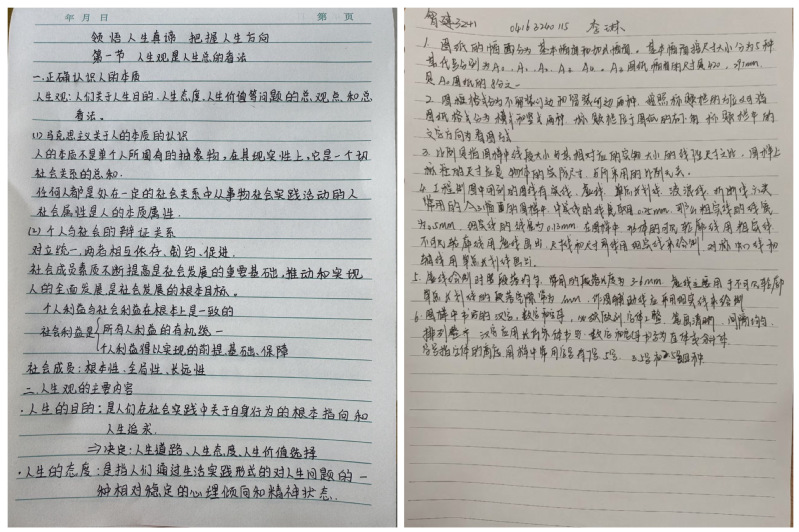 年 月 日
第 页
领悟人生真谛 把握人生方向
第一节 人生观是人生总的看法
一.正确认识人的本质
人生观:人们关于人生目的、人生态度、人生价值等问题的总观点和总
看法。
(1)马克思主义关于人的本质的认识
人的本质不是单个人所固有的抽象物,在其现实性上,它是一个切
社会关系的总和.
任何人都是处在一定的社会关系中从事物社会实践活动的人
社会属性是人的本质属性.
(2)个人与社会的辩证关系
对立统一,两者相互依存、制约、促进.
社会成员素质不断提高是社会发展的重要基础,推动和实现
人的全面发展是社会发展的根本目标。
个人利益与社会利益在根本上是一致的
社会利益是 所有人利益的有机统一
个人利益得以实现的前提、基础、保障
社会成员:根本性、全局性、长远性
二.人生观的主要内容
·人生的目的:是人们在社会实践中关于自身行为的根本指向和
人生追求.
⇒决定:人生道路、人生态度、人生价值选择
·人生的态度:是指人们通过生活实践形式的对人生问题的一
种相对稳定的心理倾向和精神状态.
智建3241 04163240115 李琳
1. 图纸的幅面分为基本幅面和加长幅面。基本幅面按尺寸大小分为5种
其代号分别为A0、A1、A2、A3、A4。A3图纸幅面的尺寸是420,297mm
是A0图纸的8分之一
2. 图框格式分为不留装订边和留装订边两种,按照标题栏的方位又可将
图纸格式分为横式和竖式两种,标题栏位于图纸的右下角 标题栏中的
文字方向为看图方向
3. 比例是指图样中线段大小与其相对应的实物大小的线性尺寸之比,图样上
标注的尺寸应是物体的实际尺寸,与所采用的比例无关。
4. 工程制图中用到的图线有实线、虚线、单点长划线、波浪线、折断线六类
常用的A3幅面的图样中,中实线的线宽取用0.25mm,那么粗实线的线宽
为0.5mm,细实线的线宽为0.13mm 在图样中,物体的可见轮廓线用粗实线
不可见轮廓线用虚线画出,尺寸线和尺寸界线用细实线来绘制,对称中心线和
轴线用单点长划线画出。
5. 虚线绘制时要线段均匀,常用的线段长度为3-6mm,虚线主要用于不可见轮廓
6. 图样中书写的汉字、数字和字母,必须做到字体工整、笔画清晰、间隔均匀、
排列整齐,